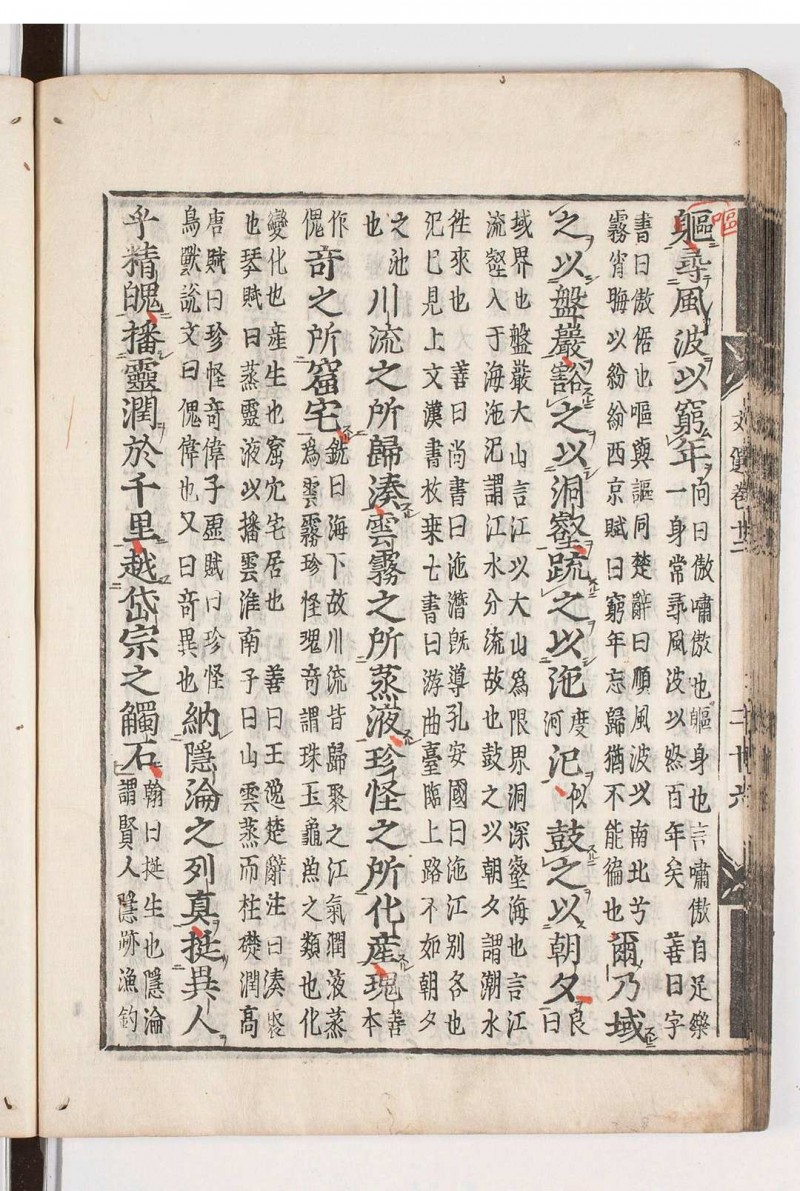 軀尋風波以窮年向曰傲嘯傲也軀身也言嘯傲自足樂一身常尋風波以終百年矣 善曰字
書曰傲倨也嘔與謳同楚辭曰順風波以南北兮霧宵晦以紛紛西京賦曰窮年忘歸猶不能徧也爾乃域
之以盤巖豁之以洞壑䟽之以沲度河汜似鼓之以朝夕良曰
域界也盤巖大山言江以大山爲限界洞深壑海也言江流壑入于海沲汜謂江水分流故也鼓之以朝夕謂潮水
徃來也 善曰尚書曰沲潛旣導孔安國曰沲江別名也汜巳見上文漢書枚乗七書曰游曲臺臨上路不如朝夕
之池也川流之所歸湊雲霧之所蒸液珍怪之所化産瑰善本
作傀奇之所窟宅銑曰海下故川流皆歸聚之江氣潤液蒸爲雲霧珍怪瑰奇謂珠玉龜魚之類也化
變化也産生也窟穴宅居也 善曰王逸楚辭注曰湊聚也琴賦曰蒸靈液以播雲淮南子曰山雲蒸而柱礎潤高
唐賦曰珍怪奇偉子虛賦曰珍怪鳥獸說文曰傀偉也又曰奇異也納隱淪之列真挺異人
乎精魄播靈潤於千里越岱宗之觸石翰曰挺生也隱淪謂賢人隱跡漁釣
嘔
文選卷十二
二十六